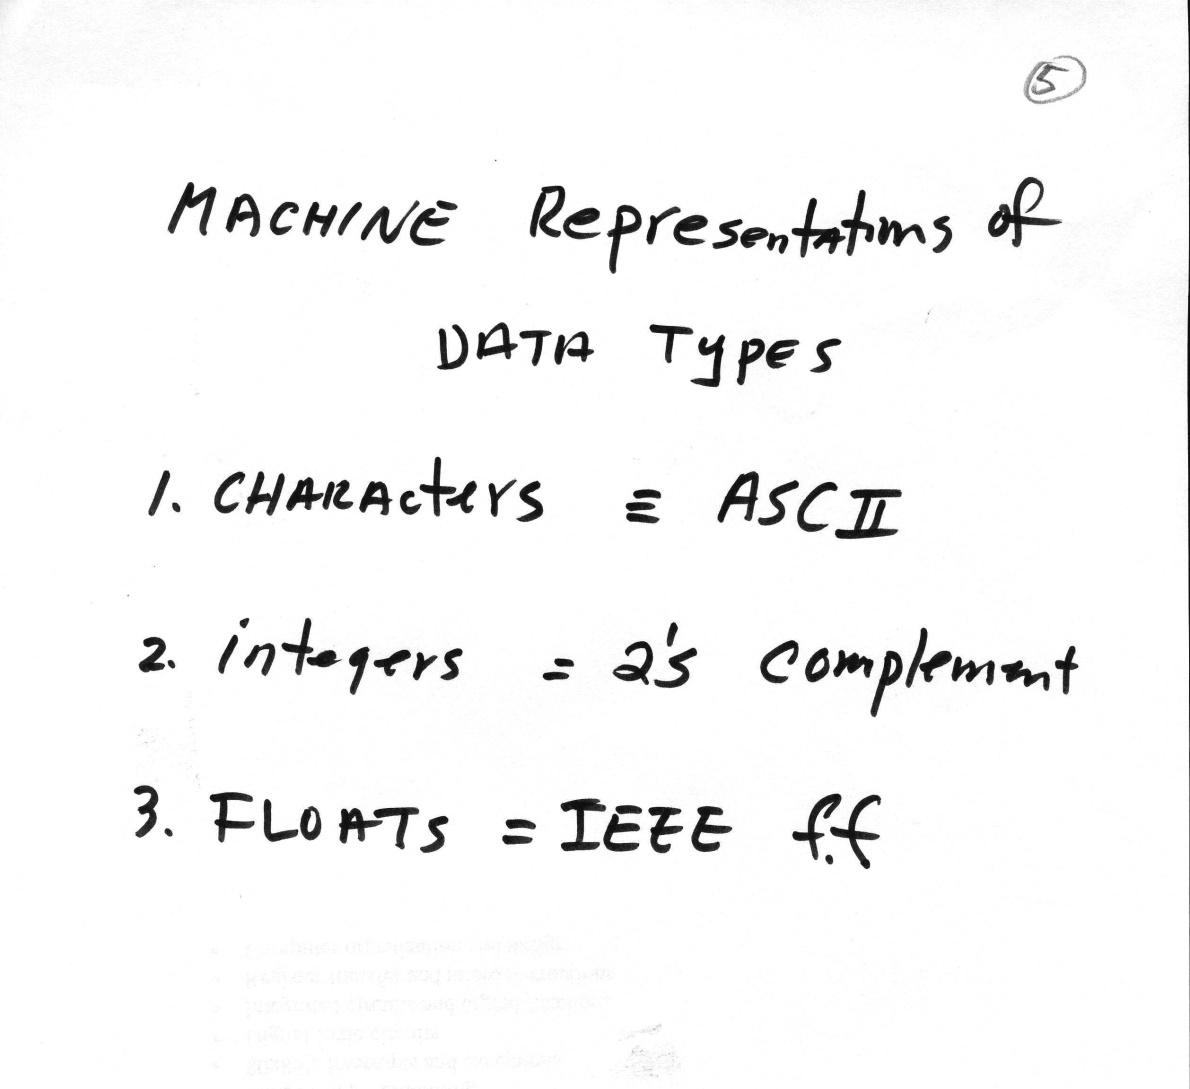 5
MACHINE Representations of
DATA Types
1. CHARACters ≡ ASCII
2. integers = 2's complement
3. FLOATS = IEEE f.f